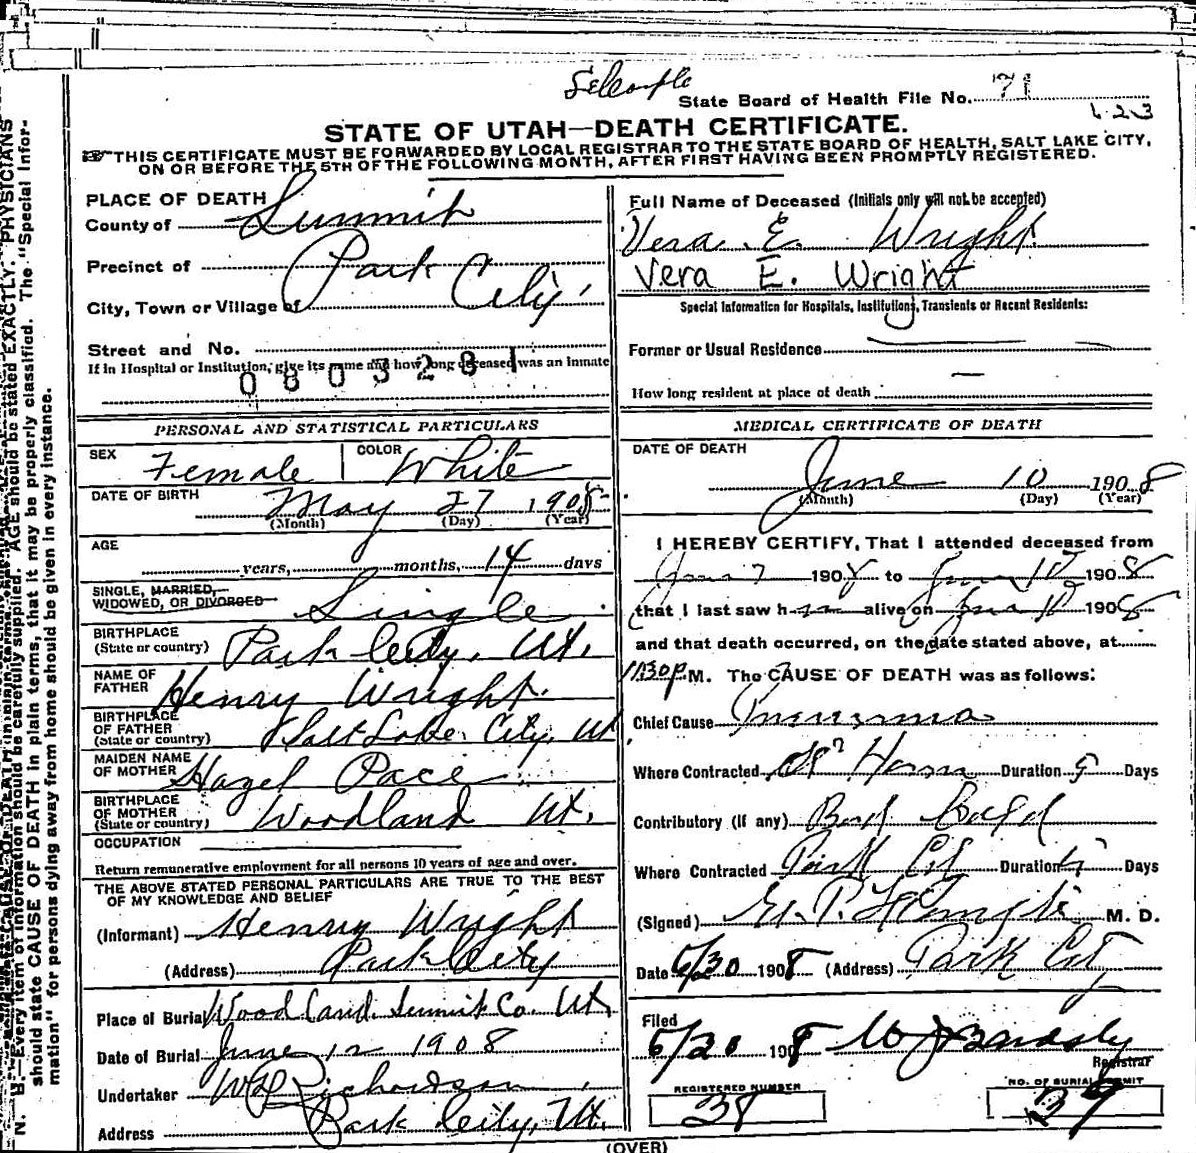 State Board of Health File No. 71
1-23
STATE OF UTAH—DEATH CERTIFICATE.
THIS CERTIFICATE MUST BE FORWARDED BY LOCAL REGISTRAR TO THE STATE BOARD OF HEALTH, SALT LAKE CITY,
ON OR BEFORE THE 5TH OF THE FOLLOWING MONTH, AFTER FIRST HAVING BEEN PROMPTLY REGISTERED.
PLACE OF DEATH
County of Summit
Precinct of Park City
City, Town or Village of
Street and No.
If in Hospital or Institution, give its name and how long deceased was an inmate
0803281
Full Name of Deceased (Initials only will not be accepted)
Vera E. Wright
Vera E. Wright
Special Information for Hospitals, Institutions, Transients or Recent Residents:
Former or Usual Residence
How long resident at place of death —
PERSONAL AND STATISTICAL PARTICULARS
SEX Female COLOR White
DATE OF BIRTH May 27 1908
(Month) (Day) (Year)
AGE
years, months, 14 days
SINGLE, MARRIED,
WIDOWED, OR DIVORCED Single
BIRTHPLACE
(State or country) Park City, Ut.
NAME OF
FATHER Henry Wright.
BIRTHPLACE
OF FATHER
(State or country) Salt Lake City, Ut
MAIDEN NAME
OF MOTHER Hazel Pace
BIRTHPLACE
OF MOTHER
(State or country) Woodland Ut.
OCCUPATION
Return remunerative employment for all persons 10 years of age and over.
THE ABOVE STATED PERSONAL PARTICULARS ARE TRUE TO THE BEST
OF MY KNOWLEDGE AND BELIEF
(Informant) Henry Wright
(Address) Park City
Place of Burial Woodland Summit Co. Ut.
Date of Burial June 12 1908
Undertaker W Richardson
Address Park City, Ut.
MEDICAL CERTIFICATE OF DEATH
DATE OF DEATH
June 10 1908
(Month) (Day) (Year)
I HEREBY CERTIFY, That I attended deceased from
Jun 7 1908 to Jun 10 1908
that I last saw h alive on Jun 10 1908
and that death occurred, on the date stated above, at
11:30 P M. The CAUSE OF DEATH was as follows:
Chief Cause Pneumonia
Where Contracted At Home Duration 5 Days
Contributory (if any) Bad Cold
Where Contracted Park City Duration Days
(Signed) M. D.
Date 6/30 1908 (Address) Park City
Filed
6/30 1908 W J Bardsly
Registrar
REGISTERED NUMBER
38
NO. OF BURIAL PERMIT
29
(OVER)
N. B.—Every item of information should be carefully supplied. AGE should be stated EXACTLY. PHYSICIANS
should state CAUSE OF DEATH in plain terms, that it may be properly classified. The "Special Infor-
mation" for persons dying away from home should be given in every instance.